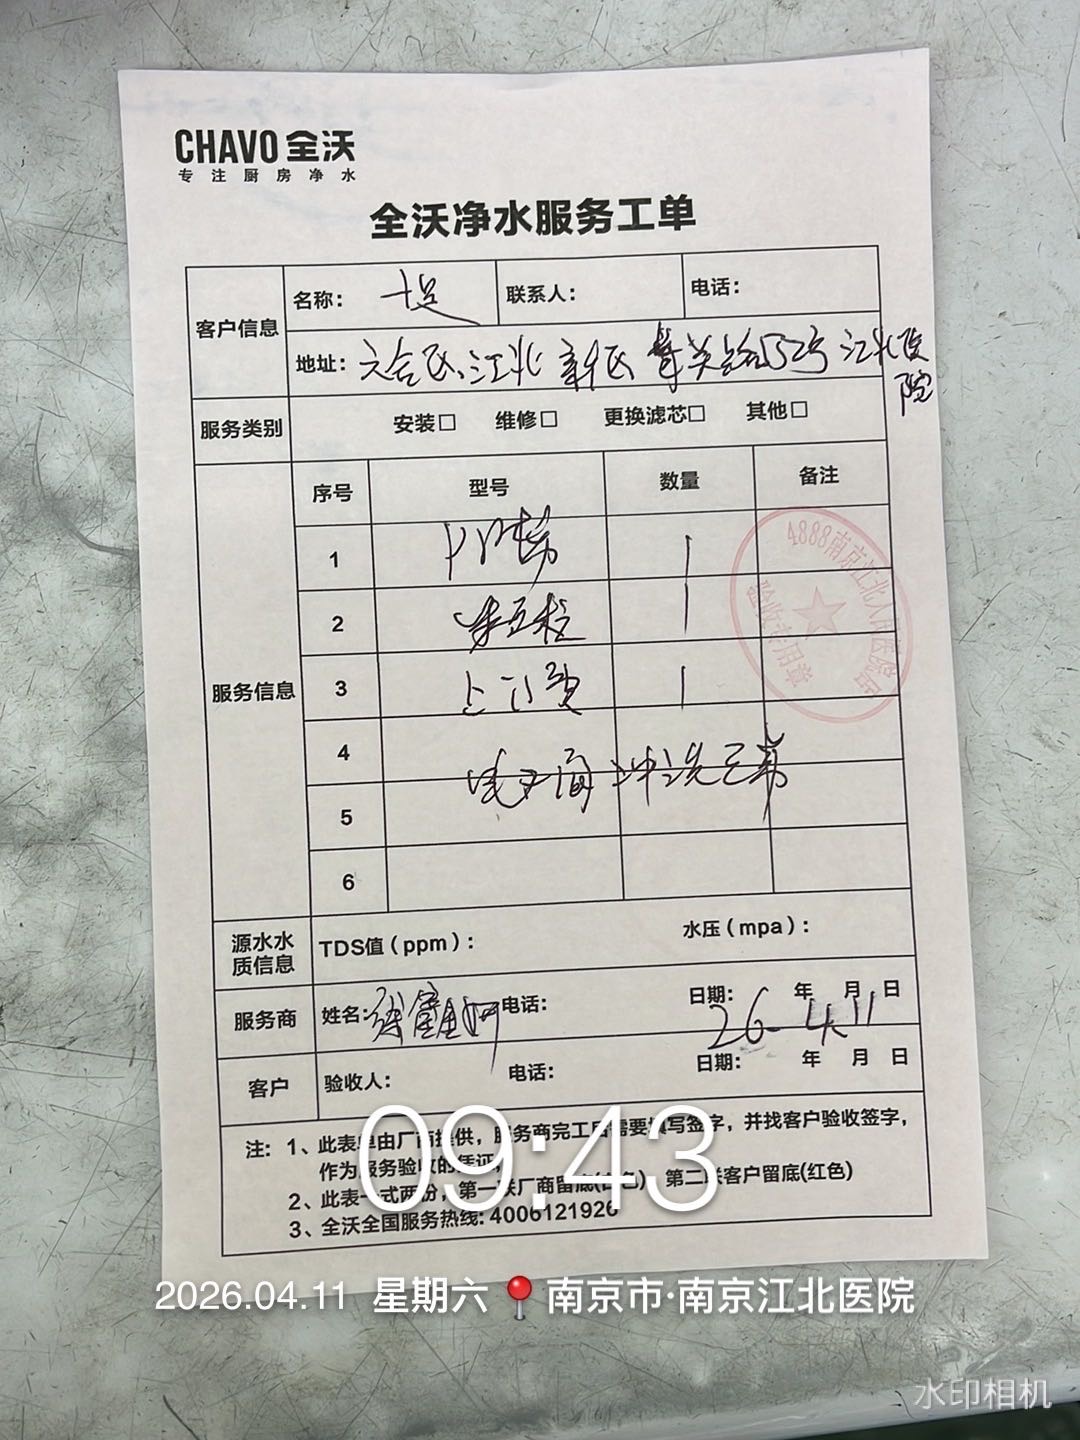 CHAVO 全沃
专注厨房净水
全沃净水服务工单
客户信息
名称：
联系人：
电话：
地址：六合区江北新区 路52号 江北医院
服务类别
安装□ 维修□ 更换滤芯□ 其他□
服务信息
序号 型号 数量 备注
1 1
2 1
3 1
4
冲洗
5
6
4888南京江北人民医院
验收专用章
源水水质信息
TDS值（ppm）：
水压（mpa）：
服务商
姓名：
电话：
日期： 年 月 日
26 4 11
客户
验收人：
电话：
日期： 年 月 日
注：1、此表单由厂商提供，服务商完工后需要填写签字，并找客户验收签字，
作为服务验收的凭证，
2、此表一式两份，第一联厂商留底(白色)，第二联客户留底(红色)
3、全沃全国服务热线: 4006121926
09:43
2026.04.11 星期六 南京市·南京江北医院
水印相机